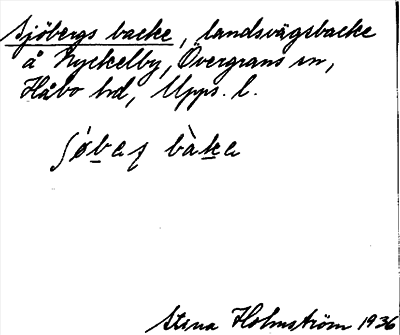 Sjöbergs backe, landsvägsbacke
å Nyckelby, Övergrans sn,
Håbo hd, Upps. l.
bàka
Stina Holmström 1936